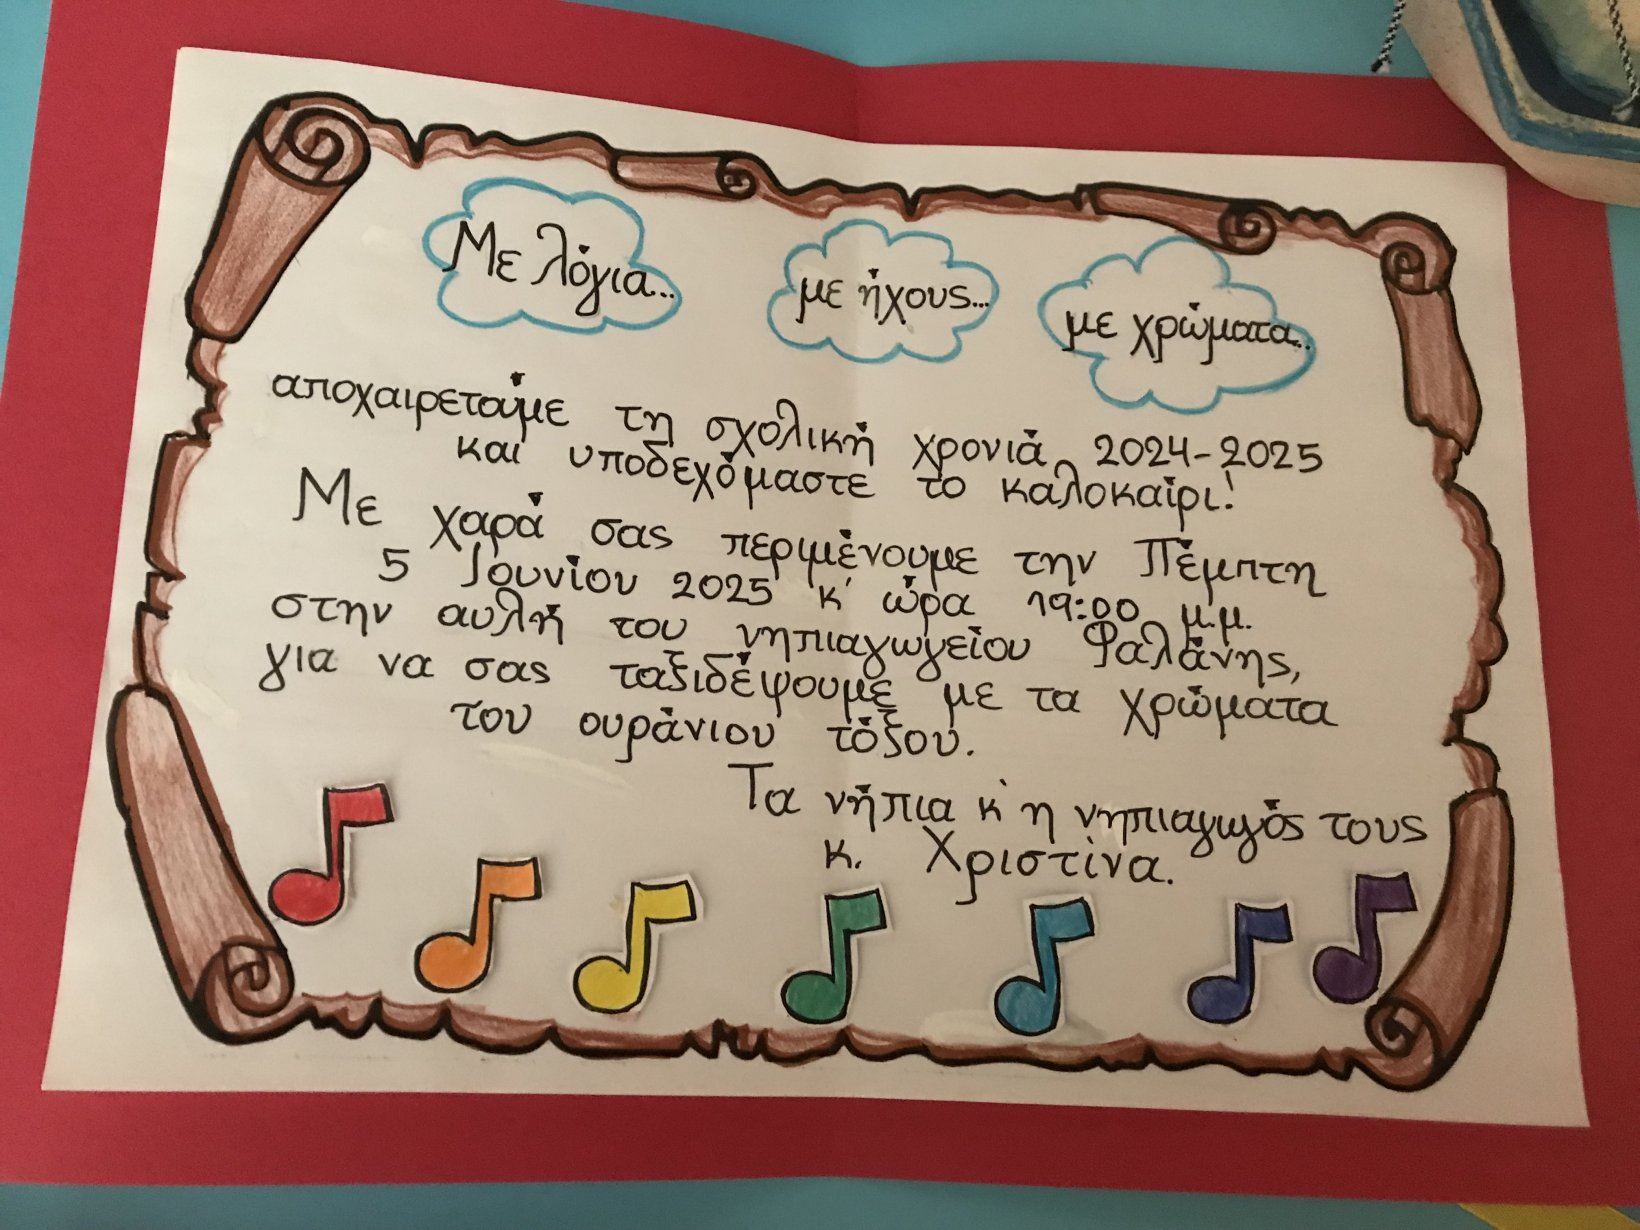 Με λόγια... με ήχους... με χρώματα...
αποχαιρετούμε τη σχολική χρονιά 2024-2025
και υποδεχόμαστε το καλοκαίρι!
Με χαρά σας περιμένουμε την Πέμπτη
5 Ιουνίου 2025 κ' ώρα 19:00 μ.μ.
στην αυλή του νηπιαγωγείου Φαλάνης,
για να σας ταξιδέψουμε με τα χρώματα
του ουράνιου τόξου.
Τα νήπια κ' η νηπιαγωγός τους
κ. Χριστίνα.